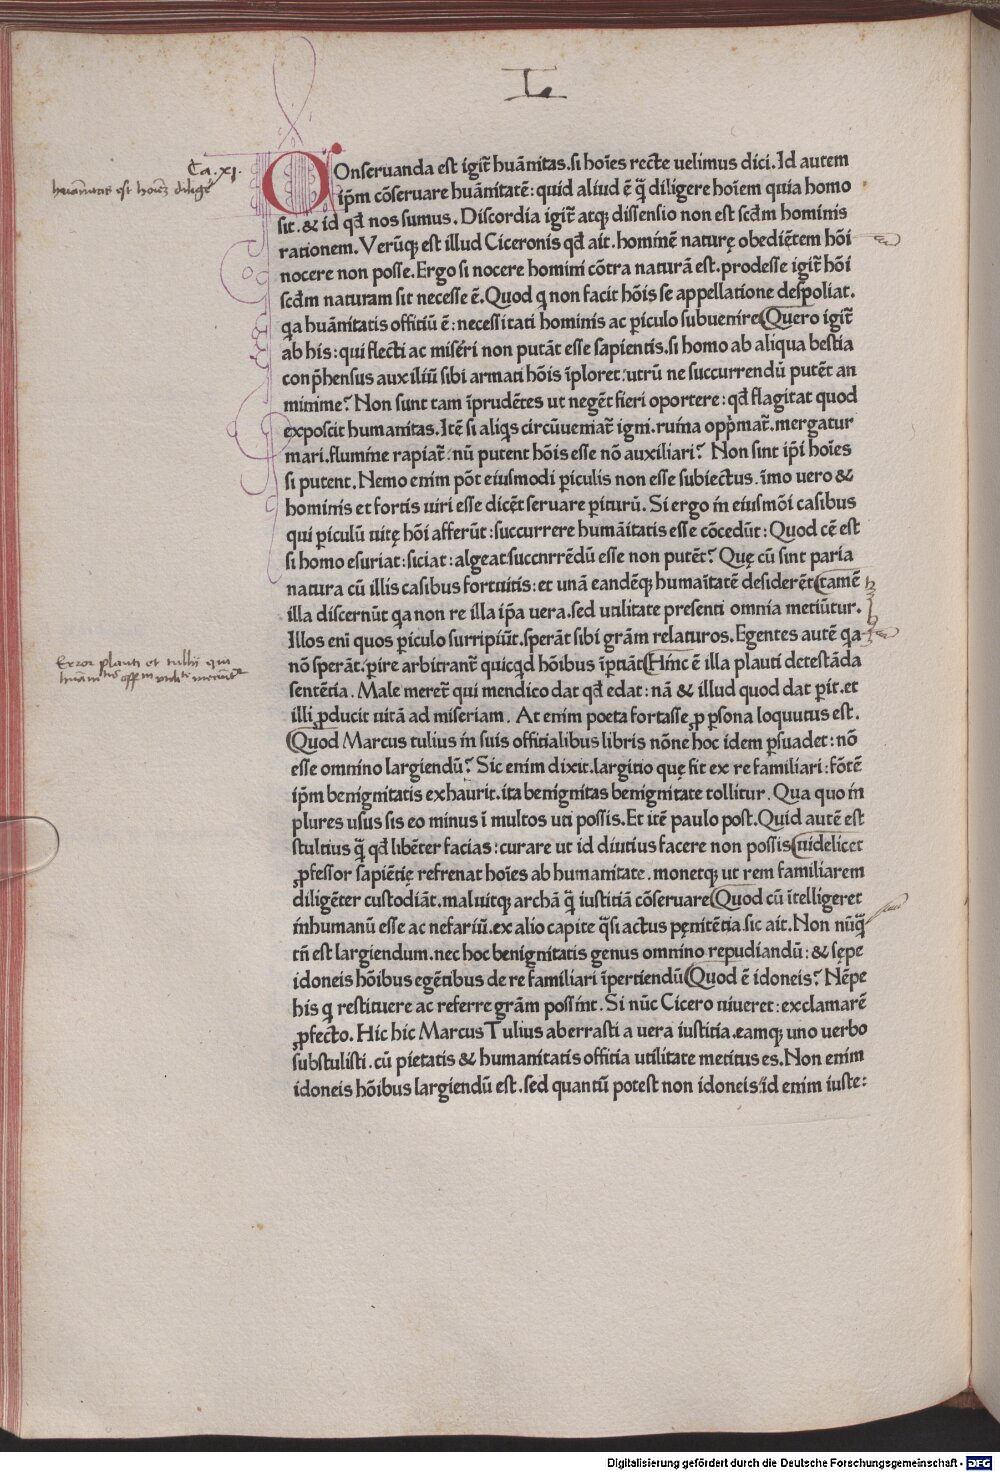 L
Ca.xj.
Onſeruanda eſt igit̃ huãnitas.ſi hoı̃es recte uelimus dici.Id autem
ip̃m cõſeruare huãnitatẽ:quid aliud ẽ q̃ diligere hoı̃em quia homo
ſit.& id qđ nos ſumus.Diſcordia igit̃ atq; diſſenſio non eſt ſcđm hominis
rationem.Verũq; eſt illud Ciceronis qđ ait.hominẽ naturę obediẽtem hõi
nocere non poſſe.Ergo ſi nocere homini cõtra naturã eſt.prodeſſe igit̃ hõi
ſcđm naturam ſit neceſſe ẽ.Quod q non facit hõis ſe appellatione deſpoliat.
qa huãnitatis offitiũ ẽ:neceſſitati hominis ac ꝑiculo ſubuenire(Quero igit̃
ab his:qui flecti ac miſeri non putãt eſſe ſapientis.ſi homo ab aliqua beſtia
conp̃henſus auxiliũ ſibi armati hõis ĩploret:utrũ ne ſuccurrendũ putẽt an
minime? Non ſunt tam ĩprudẽtes ut negẽt fieri oportere:qđ flagitat quod
expoſcit humanitas.Itẽ ſi aliqs circũueniat̃ igni.ruina opp̃mat̃.mergatur
mari.flumine rapiat̃:nũ putent hõis eſſe nõ auxiliari? Non ſint ip̃i hoı̃es
ſi putent.Nemo enim põt eiuſmodi ꝑiculis non eſſe ſubiectus.ĩmo uero &
hominis et fortis uiri eſſe dicẽt ſeruare ꝑiturũ. Si ergo in eiuſmõi caſibus
qui ꝑiculũ uitę hõi afferũt:ſuccurrere humãitatis eſſe cõcedũt:Quod cẽ eſt
ſi homo eſuriat:ſiciat:algeat:ſuccnrrẽdũ eſſe non putẽt? Quę cũ ſint paria
natura cũ illis caſibus fortuitis:et unã eandẽq; humaı̃tatẽ deſiderẽt(tamẽ
illa diſcernũt qa non re illa ip̃a uera.ſed utilitate preſenti omnia metiũtur.
Illos eni quos ꝑiculo ſurripiũt.ſperãt ſibi grãm relaturos.Egentes autẽ qa
nõ ſperãt.ꝑire arbitrant̃ quicqd hõibus ĩptiãt(Hinc ẽ illa plauti deteſtãda
ſentẽtia. Male meret̃ qui mendico dat qđ edat:nã & illud quod dat ꝑit.et
illi ꝓducit uitã ad miſeriam. At enim poeta fortaſſe ꝓ ꝑſona loquutus eſt.
(Quod Marcus tulius in ſuis offitialibus libris nõne hoc idem ꝑſuadet:nõ
eſſe omnino largiendũ? Sic enim dixit.largitio quę fit ex re familiari:fõtẽ
ip̃m benignitatis exhaurit.ita benignitas benignitate tollitur. Qua quo in
plures uſus ſis eo minus ĩ multos uti poſſis.Et itẽ paulo poſt.Quid autẽ eſt
ſtultius q̃ qđ libẽter facias:curare ut id diutius facere non poſſis(uidelicet
ꝓfeſſor ſapiẽtię refrenat hoı̃es ab humanitate.monetq; ut rem familiarem
diligẽter cuſtodiãt.maluitq; archã q̃ iuſtitiã cõſeruare(Quod cũ ĩtelligeret
inhumanũ eſſe ac nefariũ.ex alio capite q̃ſi actus pęnitẽtia ſic ait. Non nũq̃
tñ eſt largiendum.nec hoc benignitatis genus omnino repudiandũ:& ſępe
idoneis hõibus egẽtibus de re familiari ĩpertiendũ(Quod ẽ idoneis? Nẽpe
his q reſtituere ac referre grãm poſſint. Si nũc Cicero uiueret:exclamarẽ
ꝓfecto. Hic hic Marcus Tulius aberraſti a uera iuſtitia.eamq; uno uerbo
ſubſtuliſti.cũ pietatis & humanitatis offitia utilitate metitus es. Non enim
idoneis hõibus largiendũ eſt.ſed quantũ poteſt non idoneis:id enim iuſte:
Digitalisierung gefördert durch die Deutsche Forschungsgemeinschaft - DFG